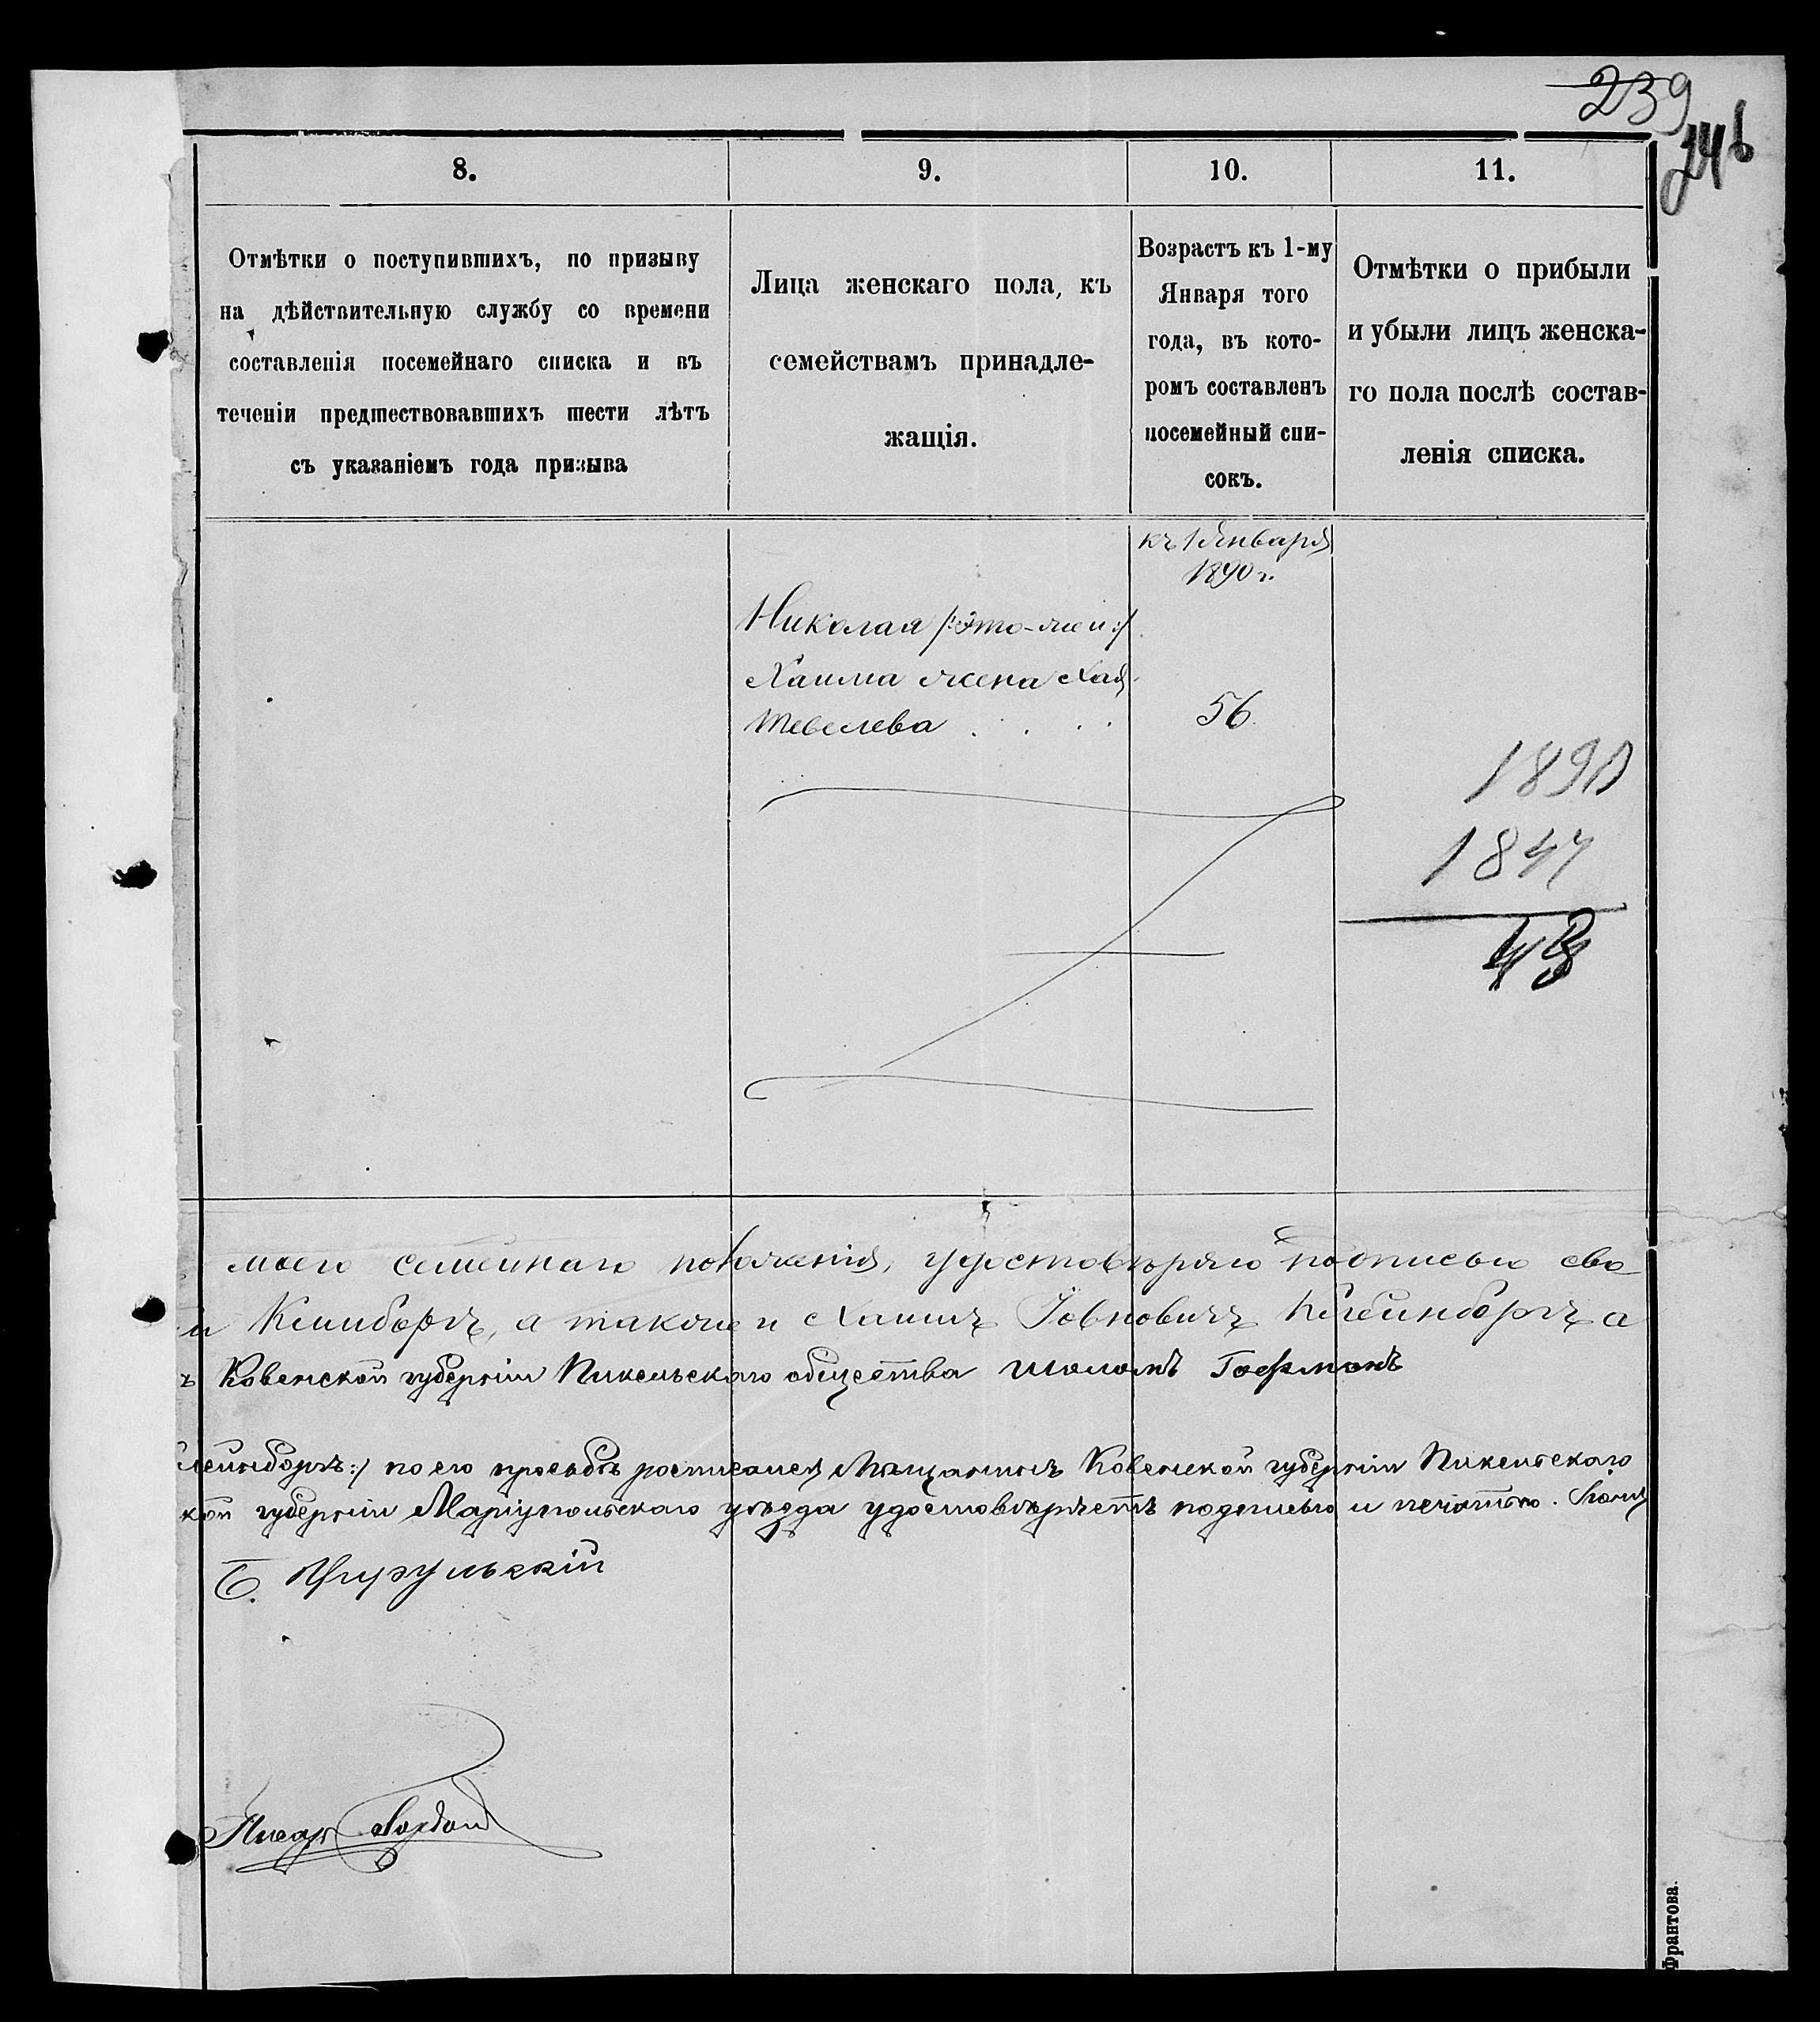 239
246
8.
9.
10.
11.
Отмѣтки о поступившихъ, по призыву
на дѣйствительную службу со времени
составленія посемейнаго списка и въ
теченіи предшествовавшихъ шести лѣтъ
съ указаніемъ года призыва
Лица женскаго пола, къ
семействамъ принадле-
жащія.
Возрастъ къ 1-му
Января того
года, въ кото-
ромъ составленъ
посемейный спи-
сокъ.
Отмѣтки о прибыли
и убыли лицъ женска-
го пола послѣ состав-
ленія списка.
къ 1 Января
1890 г.
Николая /:Это-же и:/
Хаима жена Хая
Тевелева . . . .
56.
1890
1847
43
моего семейнаго положенія, удостовѣряю подписью сво
и Клинборгъ, а также и Хаимъ Іовновичъ а
ъ Ковенской губерніи Пикельскаго общества Шоломъ Гофманъ
лейнборгъ:/ по его просьбѣ росписался Мѣщанинъ Ковенской губерніи Пикельскаго
кой губерніи Маріупольскаго уѣзда удостовѣряетъ подписью и печатью.
Б. Цирульскій
Писарь
Франтова.